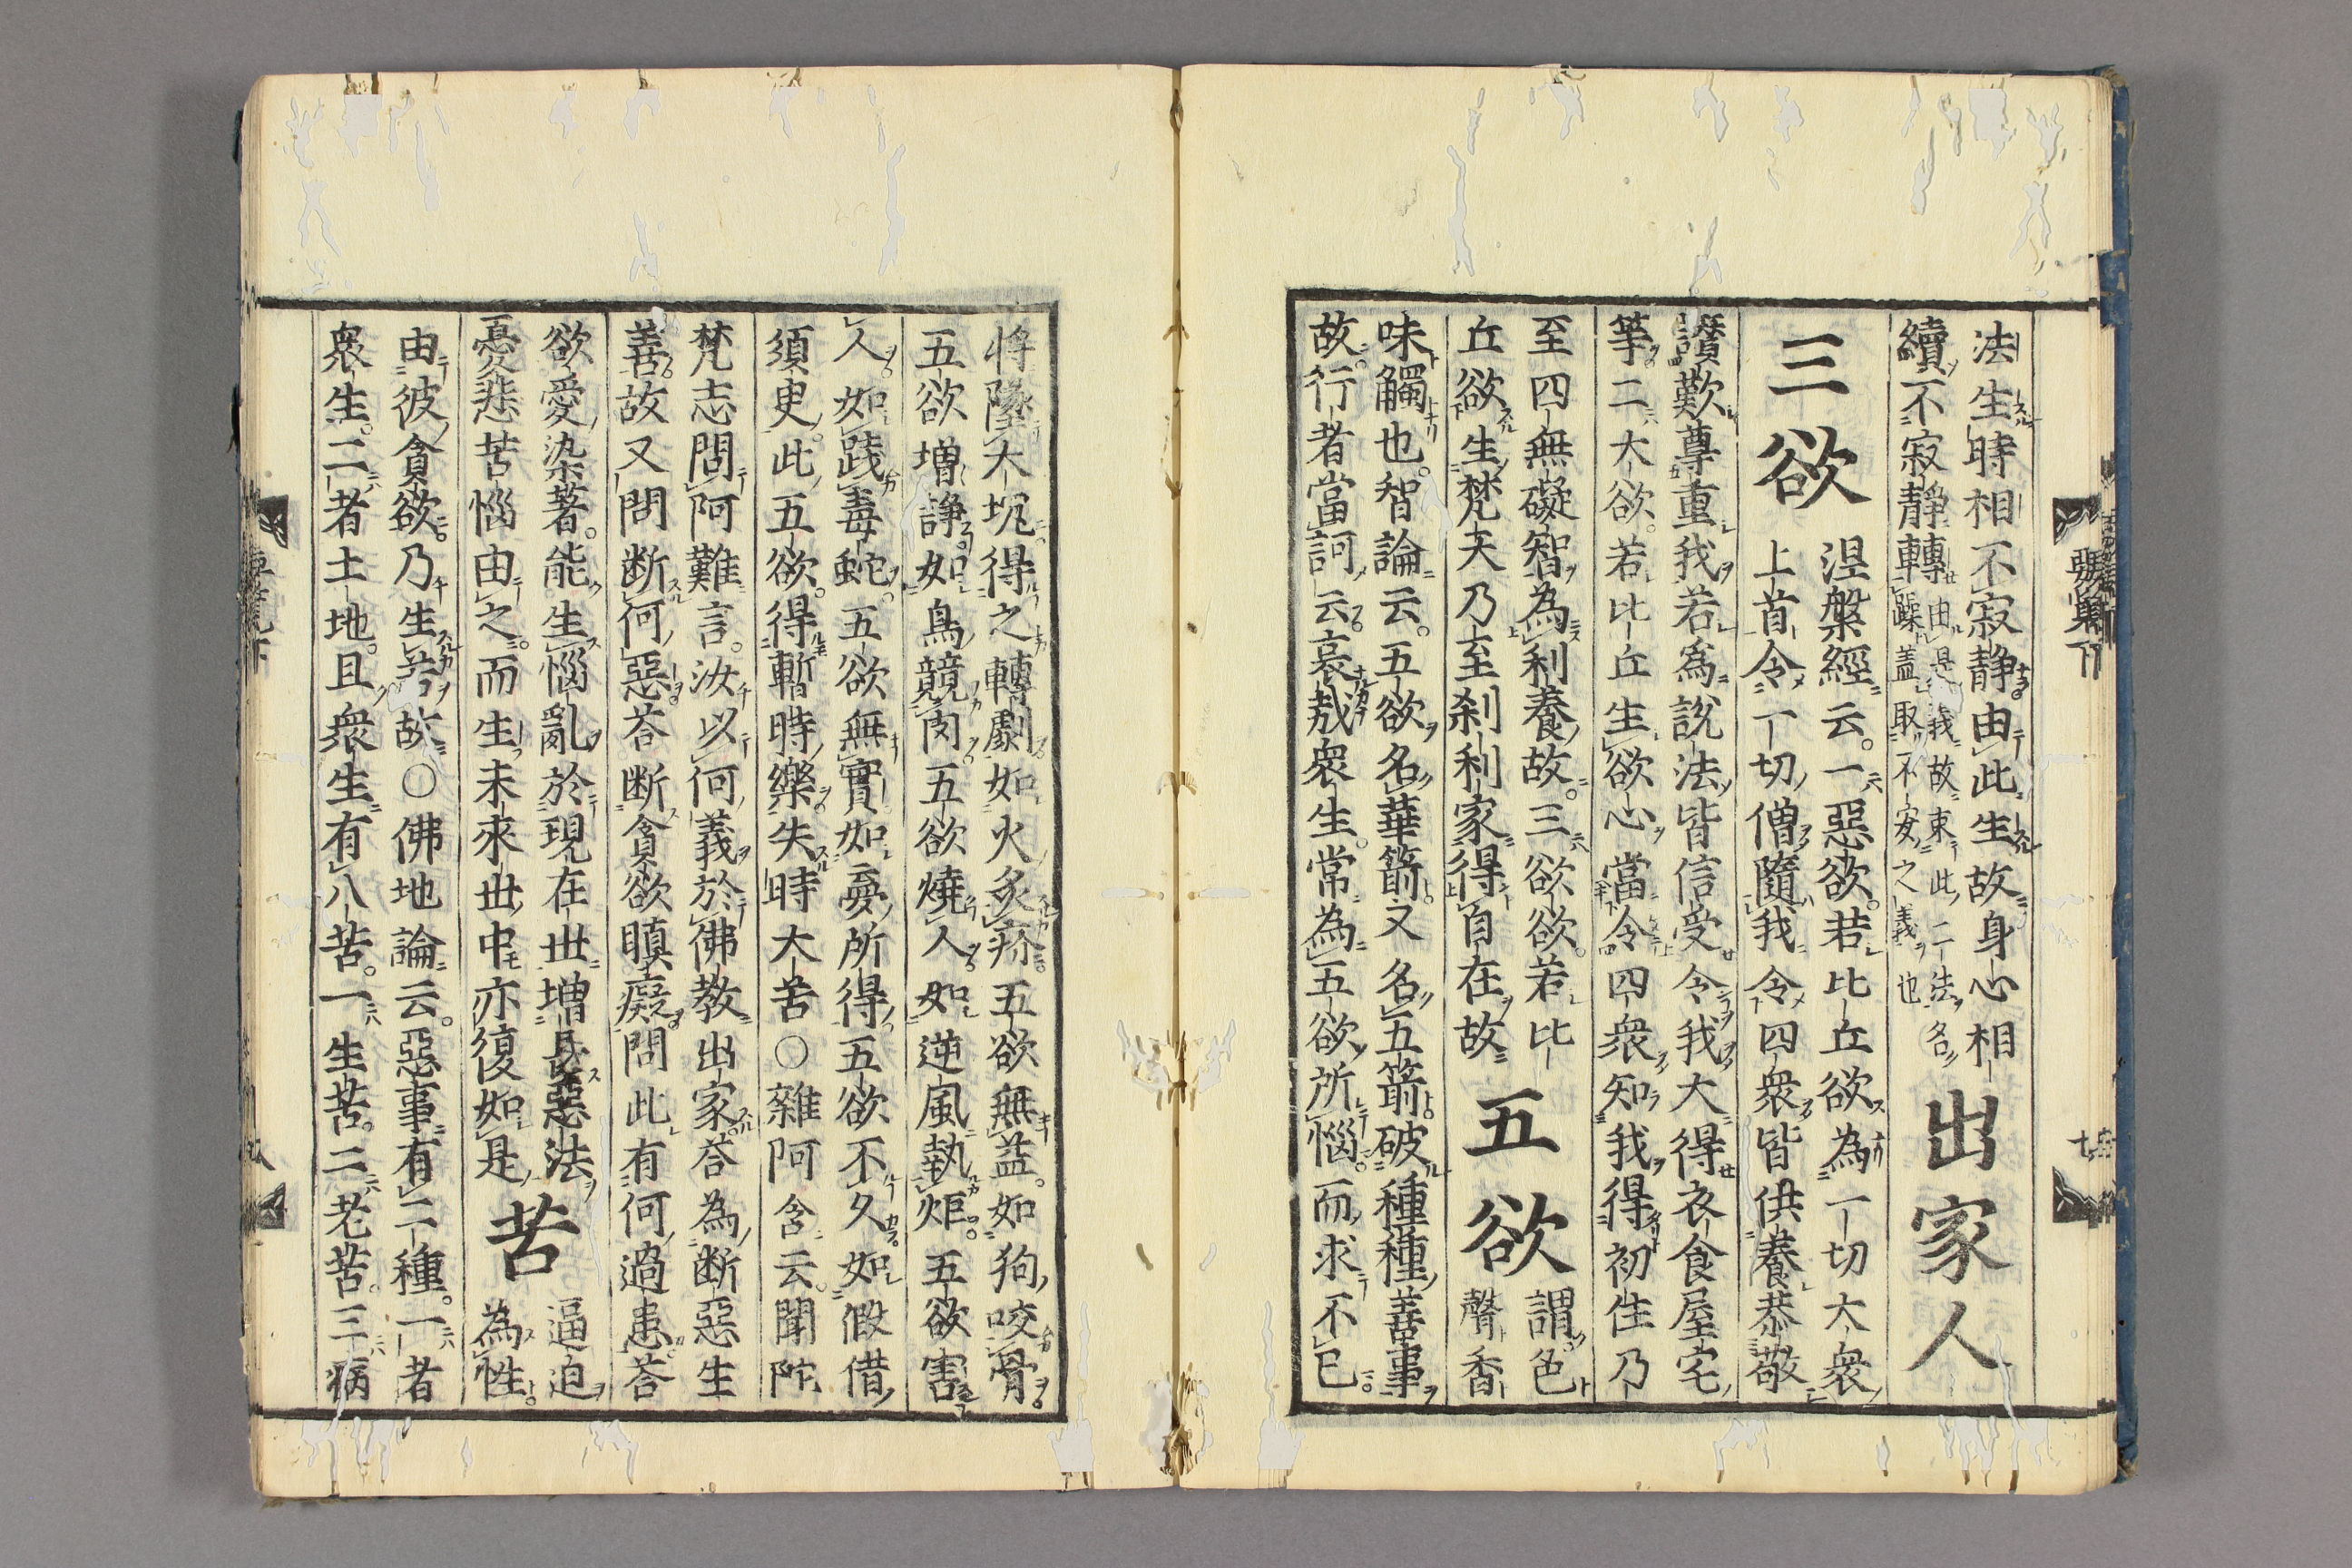 法生時相不寂静由此生故身心相
續不寂静轉
由是我故東此二法名
躁盖取不安之義也
出家人
三欲
涅槃經云。一惡欲。若比丘欲為一切大衆
上首令一切僧隨我令四衆皆供養恭敬
讃歎尊重我若為説法皆信受令我大得衣食屋宅
等。二大欲。若比丘生欲心當令四衆知我得初住乃
至四無礙智為利養故。三欲欲。若比
丘欲生梵天乃至刹利家得自在故
五欲
謂色
聲香
味觸也。智論云。五欲名華箭。又名五箭。破種種善事
故。行者當訶云哀哉衆生。常為五欲所惱。而求不已
將墜大坑得之轉劇如火炙疥。五欲無益。如狗咬骨。
五欲増諍如鳥競肉。五欲燒人如逆風執炬。五欲害
人。如踐毒蛇。五欲無實如夢所得五欲不久。如假借
須臾。此五欲。得暫時樂。失時大苦〇雜阿含云。聞陀
梵志問阿難言。汝以何義於佛教出家。荅為断惡生
善故又問断何惡。荅断貪欲瞋癡。問此有何過患。荅
欲愛染著。能生惱亂於現在世増長惡法
憂悲苦惱由之。而生未來世中亦復如是
苦
逼迫
為性。
由彼貪欲。乃生苦故〇佛地論云。惡事有二種。一者
衆生。二者土地。且衆生有八苦。一生苦。二老苦。三病